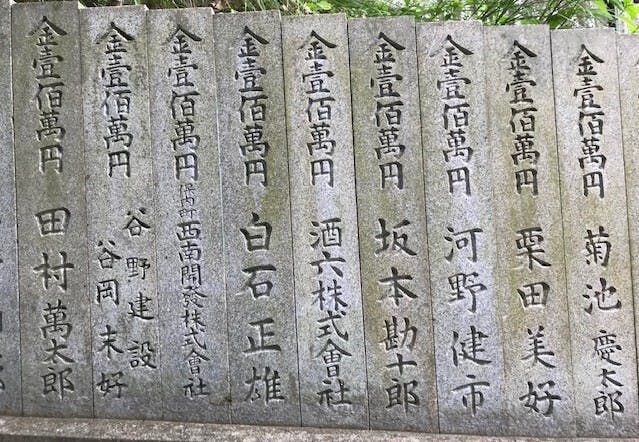 金壹佰萬円 菊池慶太郎
金壹佰萬円 栗田美好
金壹佰萬円 河野健市
金壹佰萬円 坂本勘十郎
金壹佰萬円 酒六株式會社
金壹佰萬円 白石正雄
金壹佰萬円 保内町 西南開發株式會社
金壹佰萬円 谷野建設
谷岡末好
金壹佰萬円 田村萬太郎